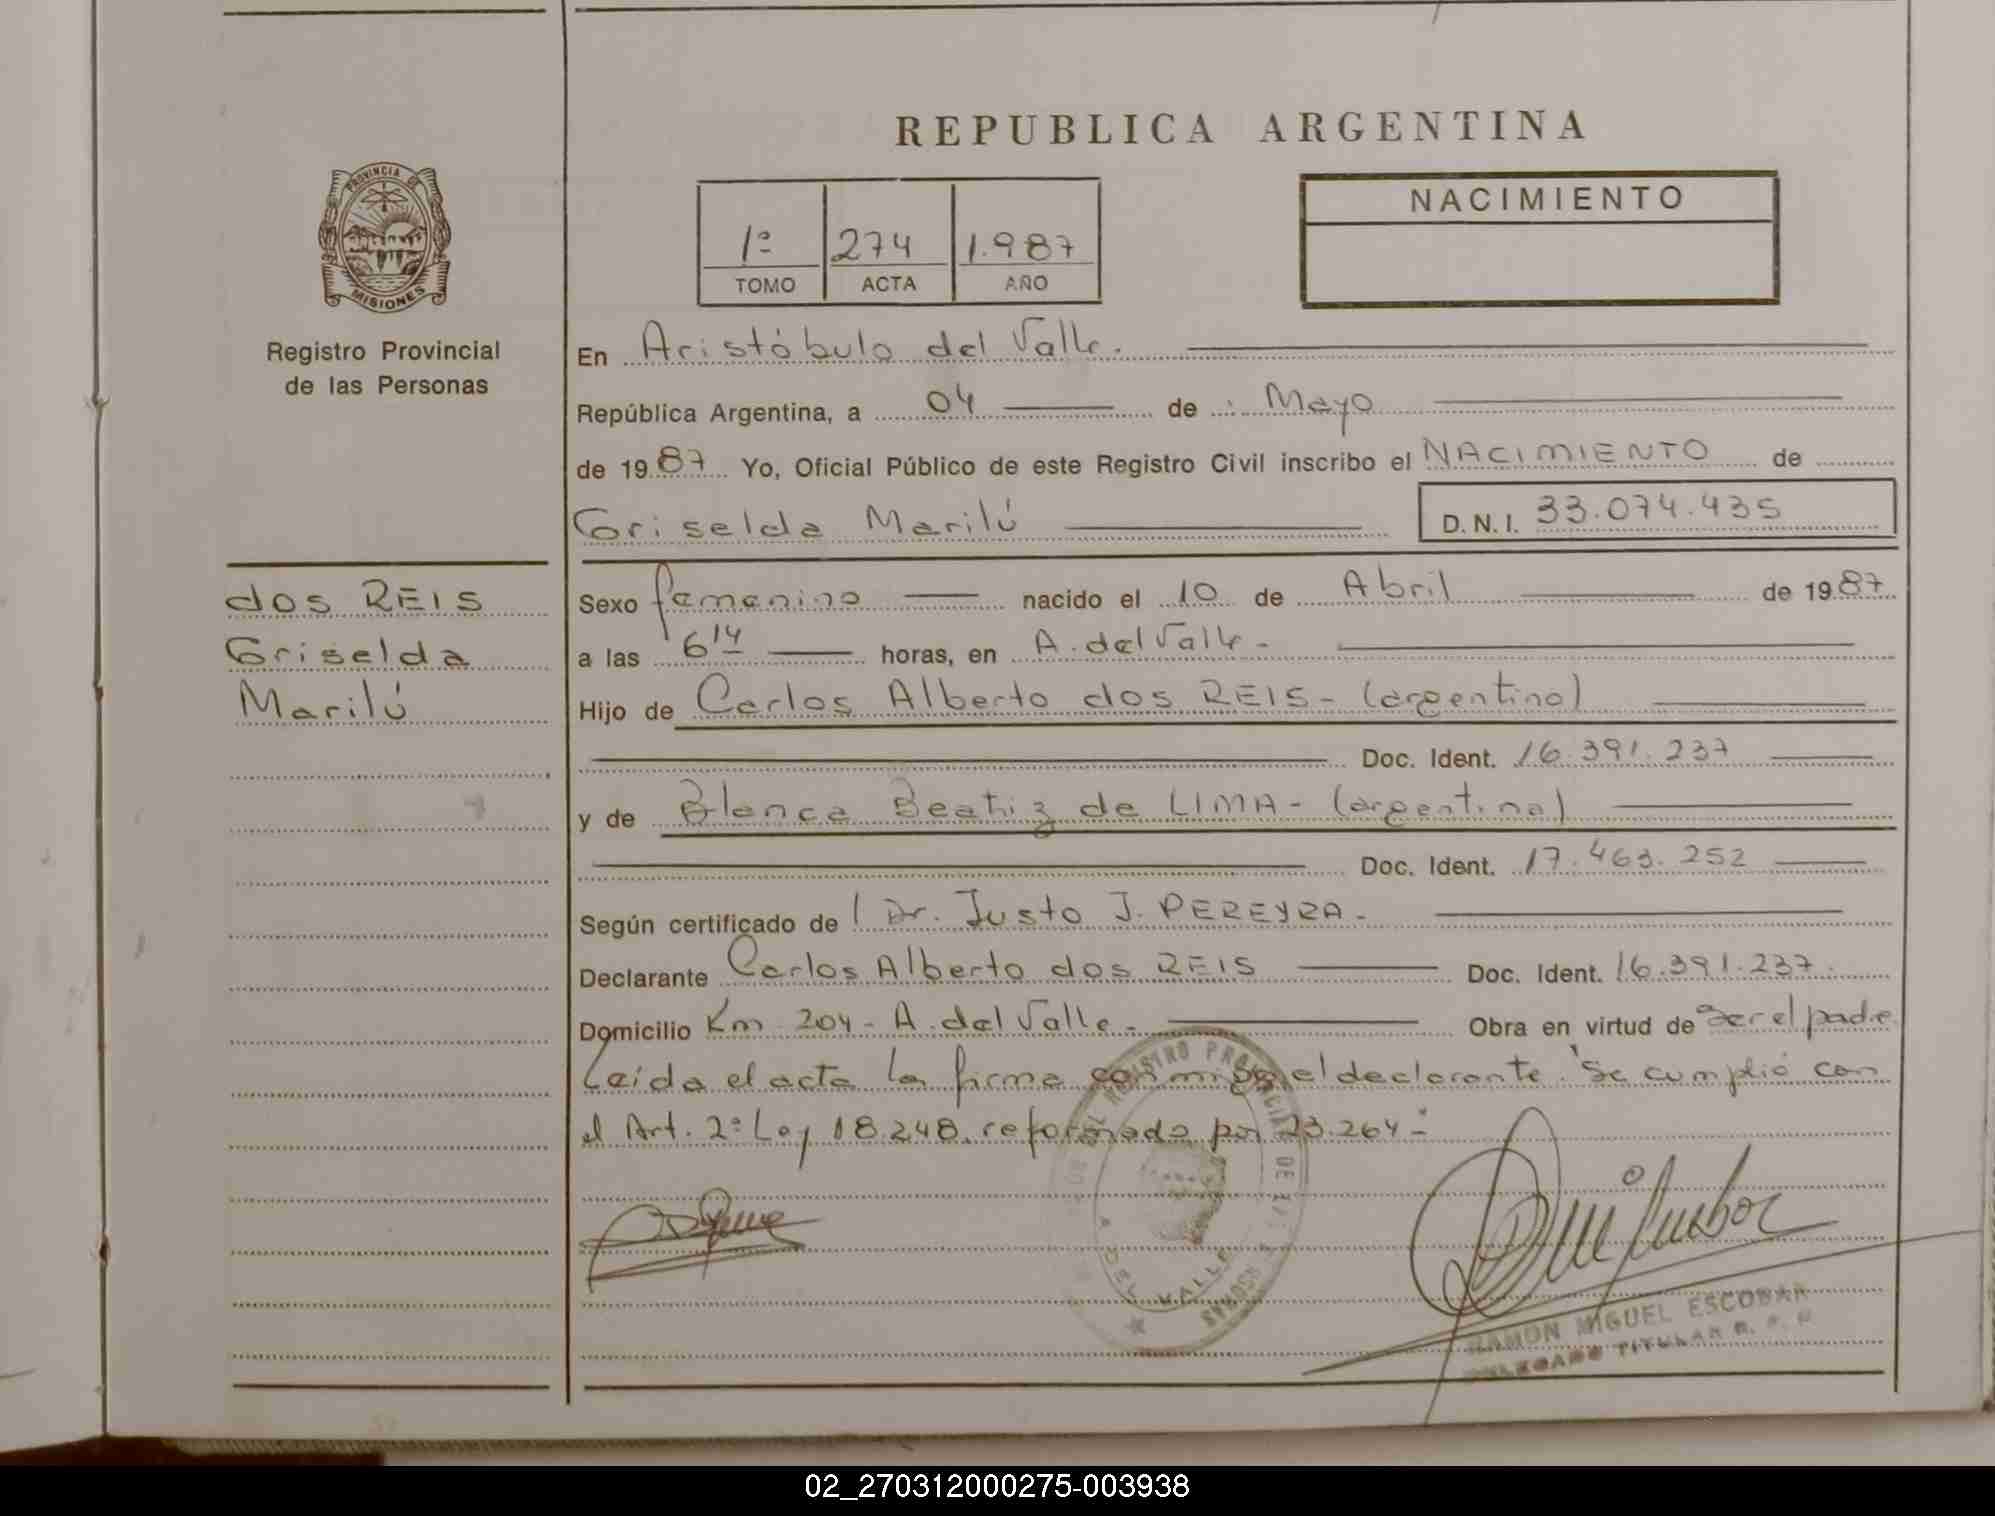 REPUBLICA ARGENTINA
PROVINCIA DE
MISIONES
Registro Provincial
de las Personas
1º 274 1.987
TOMO ACTA AÑO
NACIMIENTO
En Aristóbulo del Valle.
República Argentina, a 04 de Mayo
de 1987 Yo, Oficial Público de este Registro Civil inscribo el NACIMIENTO de
Griselda Marilú D. N. I. 33.074.435
dos REIS
Griselda
Marilú
Sexo femenino nacido el 10 de Abril de 1987
a las 6 14 horas, en A. del Valle -
Hijo de Carlos Alberto dos REIS - (argentino)
Doc. Ident. 16.391.237
y de Blanca Beatriz de LIMA - (argentina)
Doc. Ident. 17.463.252
Según certificado de Dr. Justo J. PEREYRA -
Declarante Carlos Alberto dos REIS Doc. Ident. 16.391.237.
Domicilio Km 204 - A. del Valle - Obra en virtud de Ser el padre
Leída el acta la firma conmigo el declarante. Se cumplió con
el Art. 2º Ley 18.248. reformado por 23.264 -
REGISTRO PROVINCIAL DE
A. DEL VALLE
RAMON MIGUEL ESCOBAR
DELEGADO TITULAR R. P. P.
02_270312000275-003938